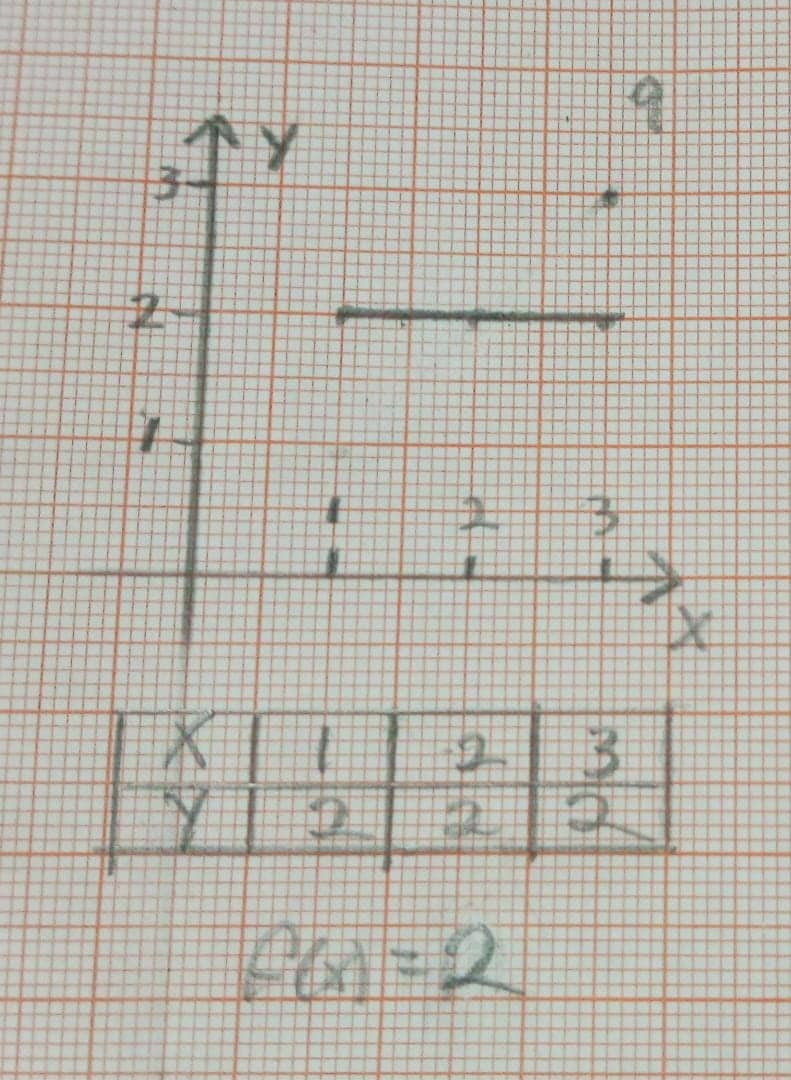 q
Y
3
2
1
1 2 3
X
X 1 2 3
Y 2 2 2
f(x) = 2